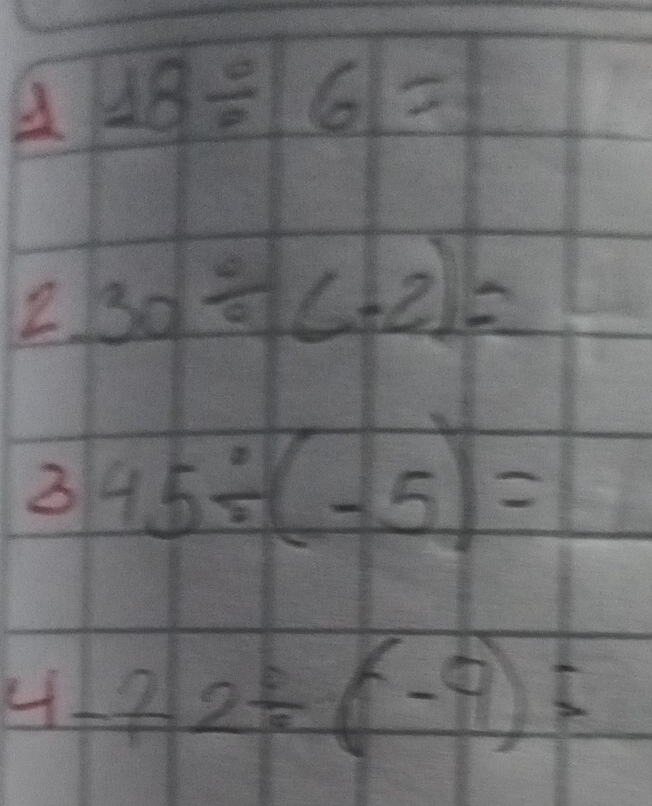 1 18 ÷ 6 =
2. 30 ÷ (-2) =
3 45 ÷ (-5) =
4 -72 ÷ (-9) =